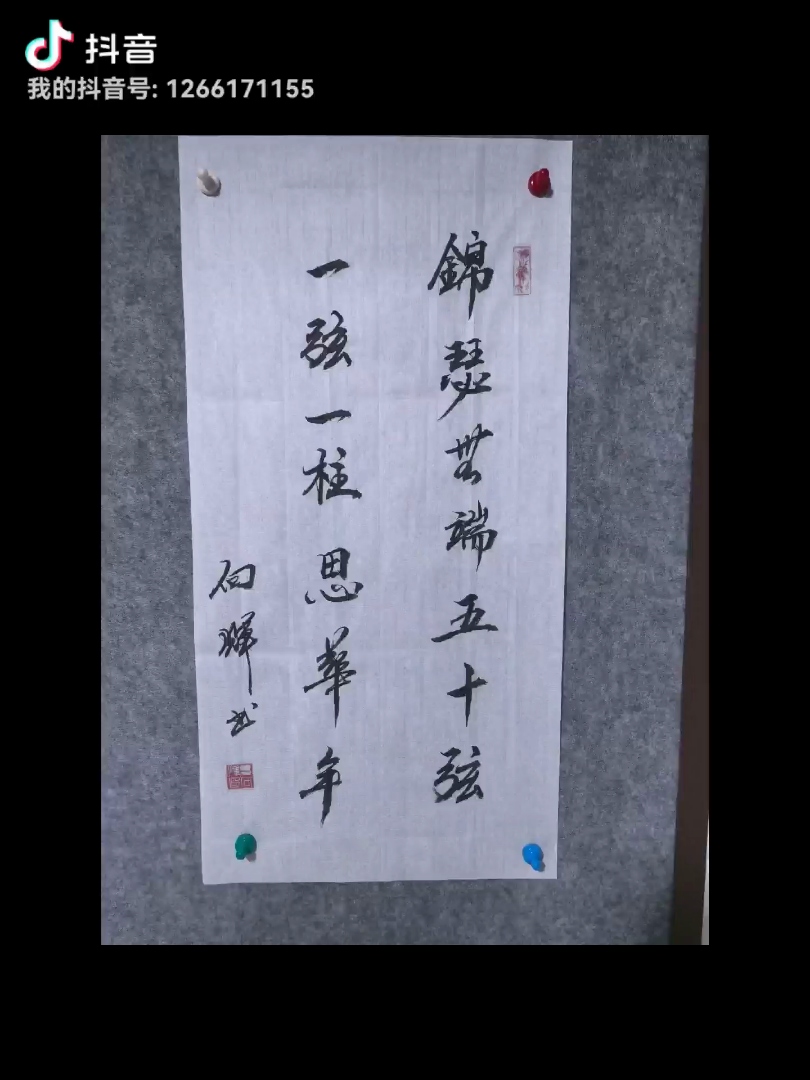 抖音
我的抖音号: 1266171155
錦瑟無端五十弦
一弦一柱思華年
向輝书